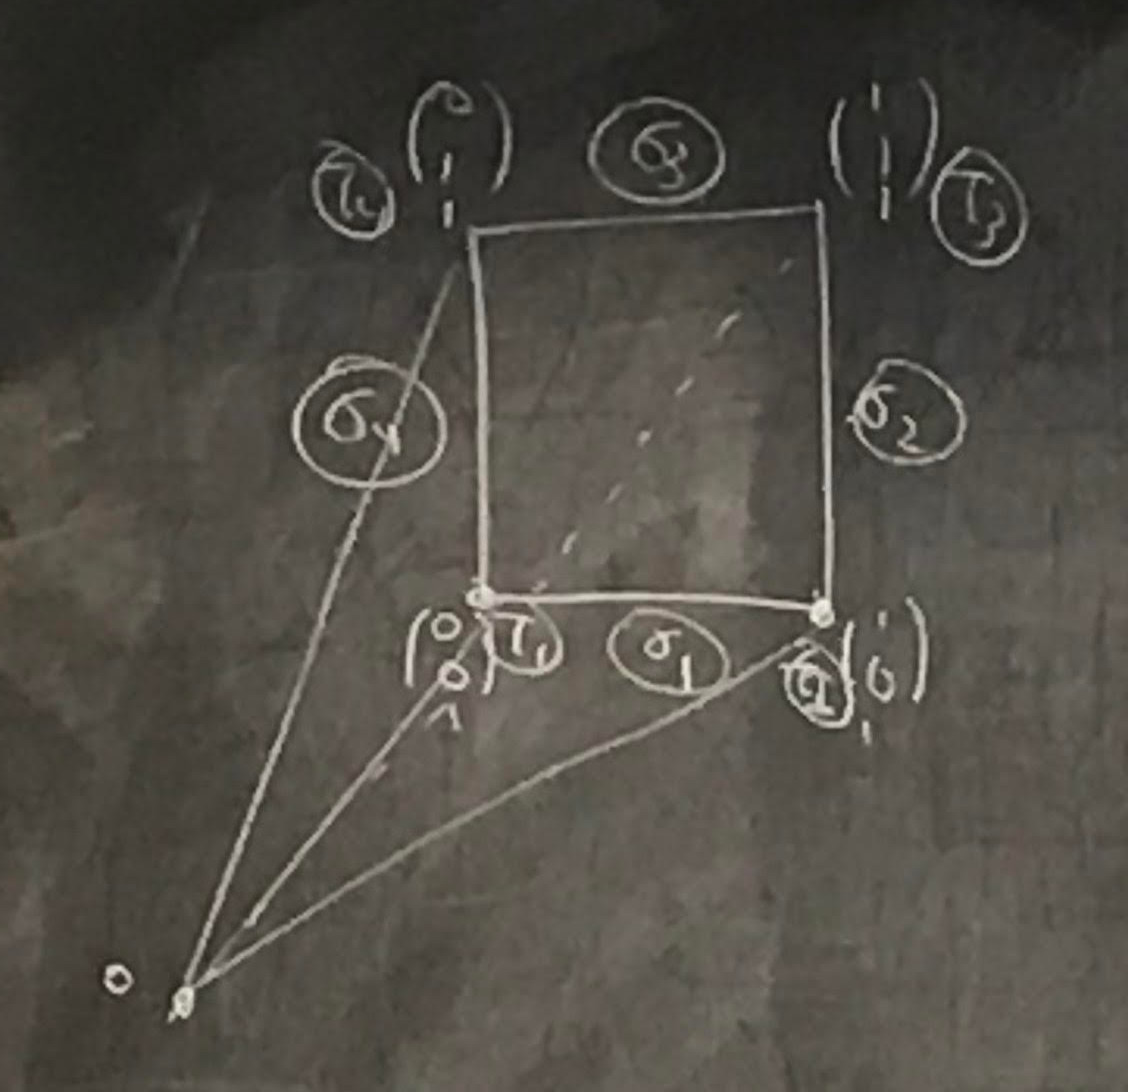 τ₄ (0 1 1) σ₃ (1 1 1) τ₃
σ₄ σ₂
(0 0 1) τ₁ σ₁ τ₂ (1 0 1)
0